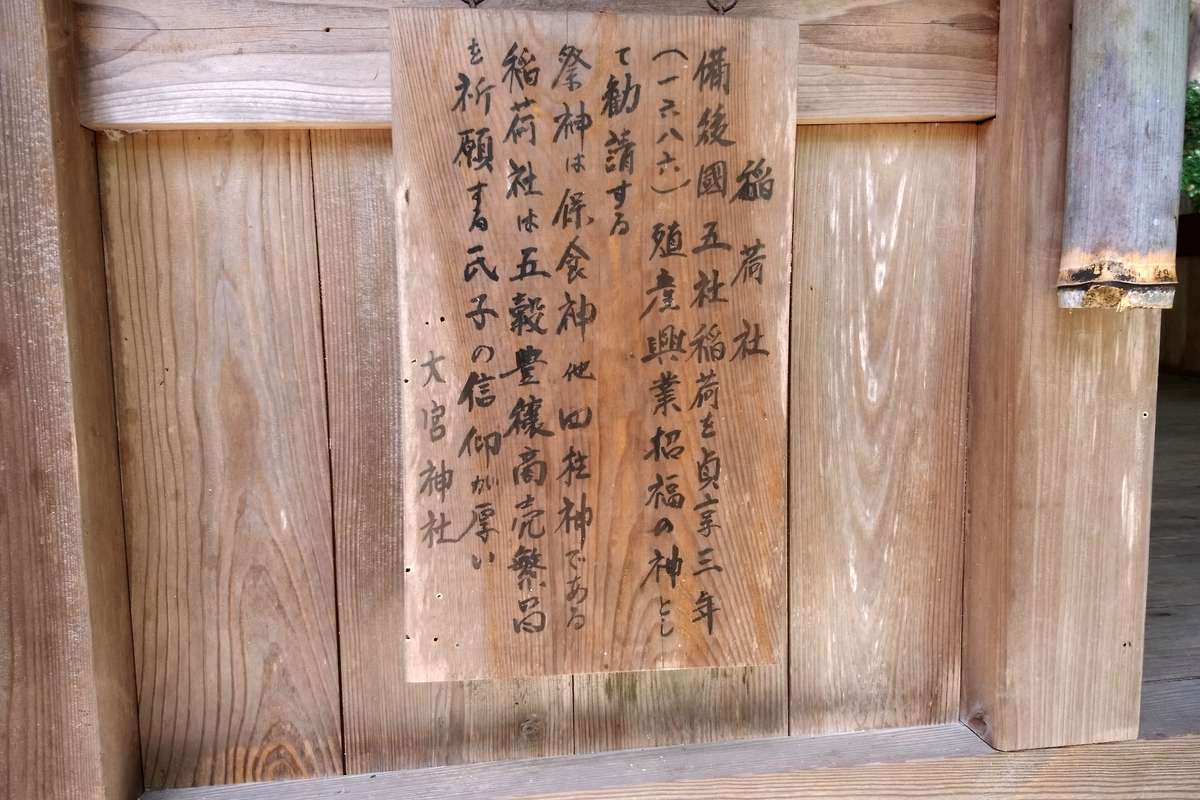 稲荷社
備後國五社稲荷を貞享三年
(一六八六)殖産興業招福の神とし
て勧請する
祭神は保食神他四柱神である
稲荷社は五穀豊穣商売繁昌
を祈願する氏子の信仰が厚い
大宮神社